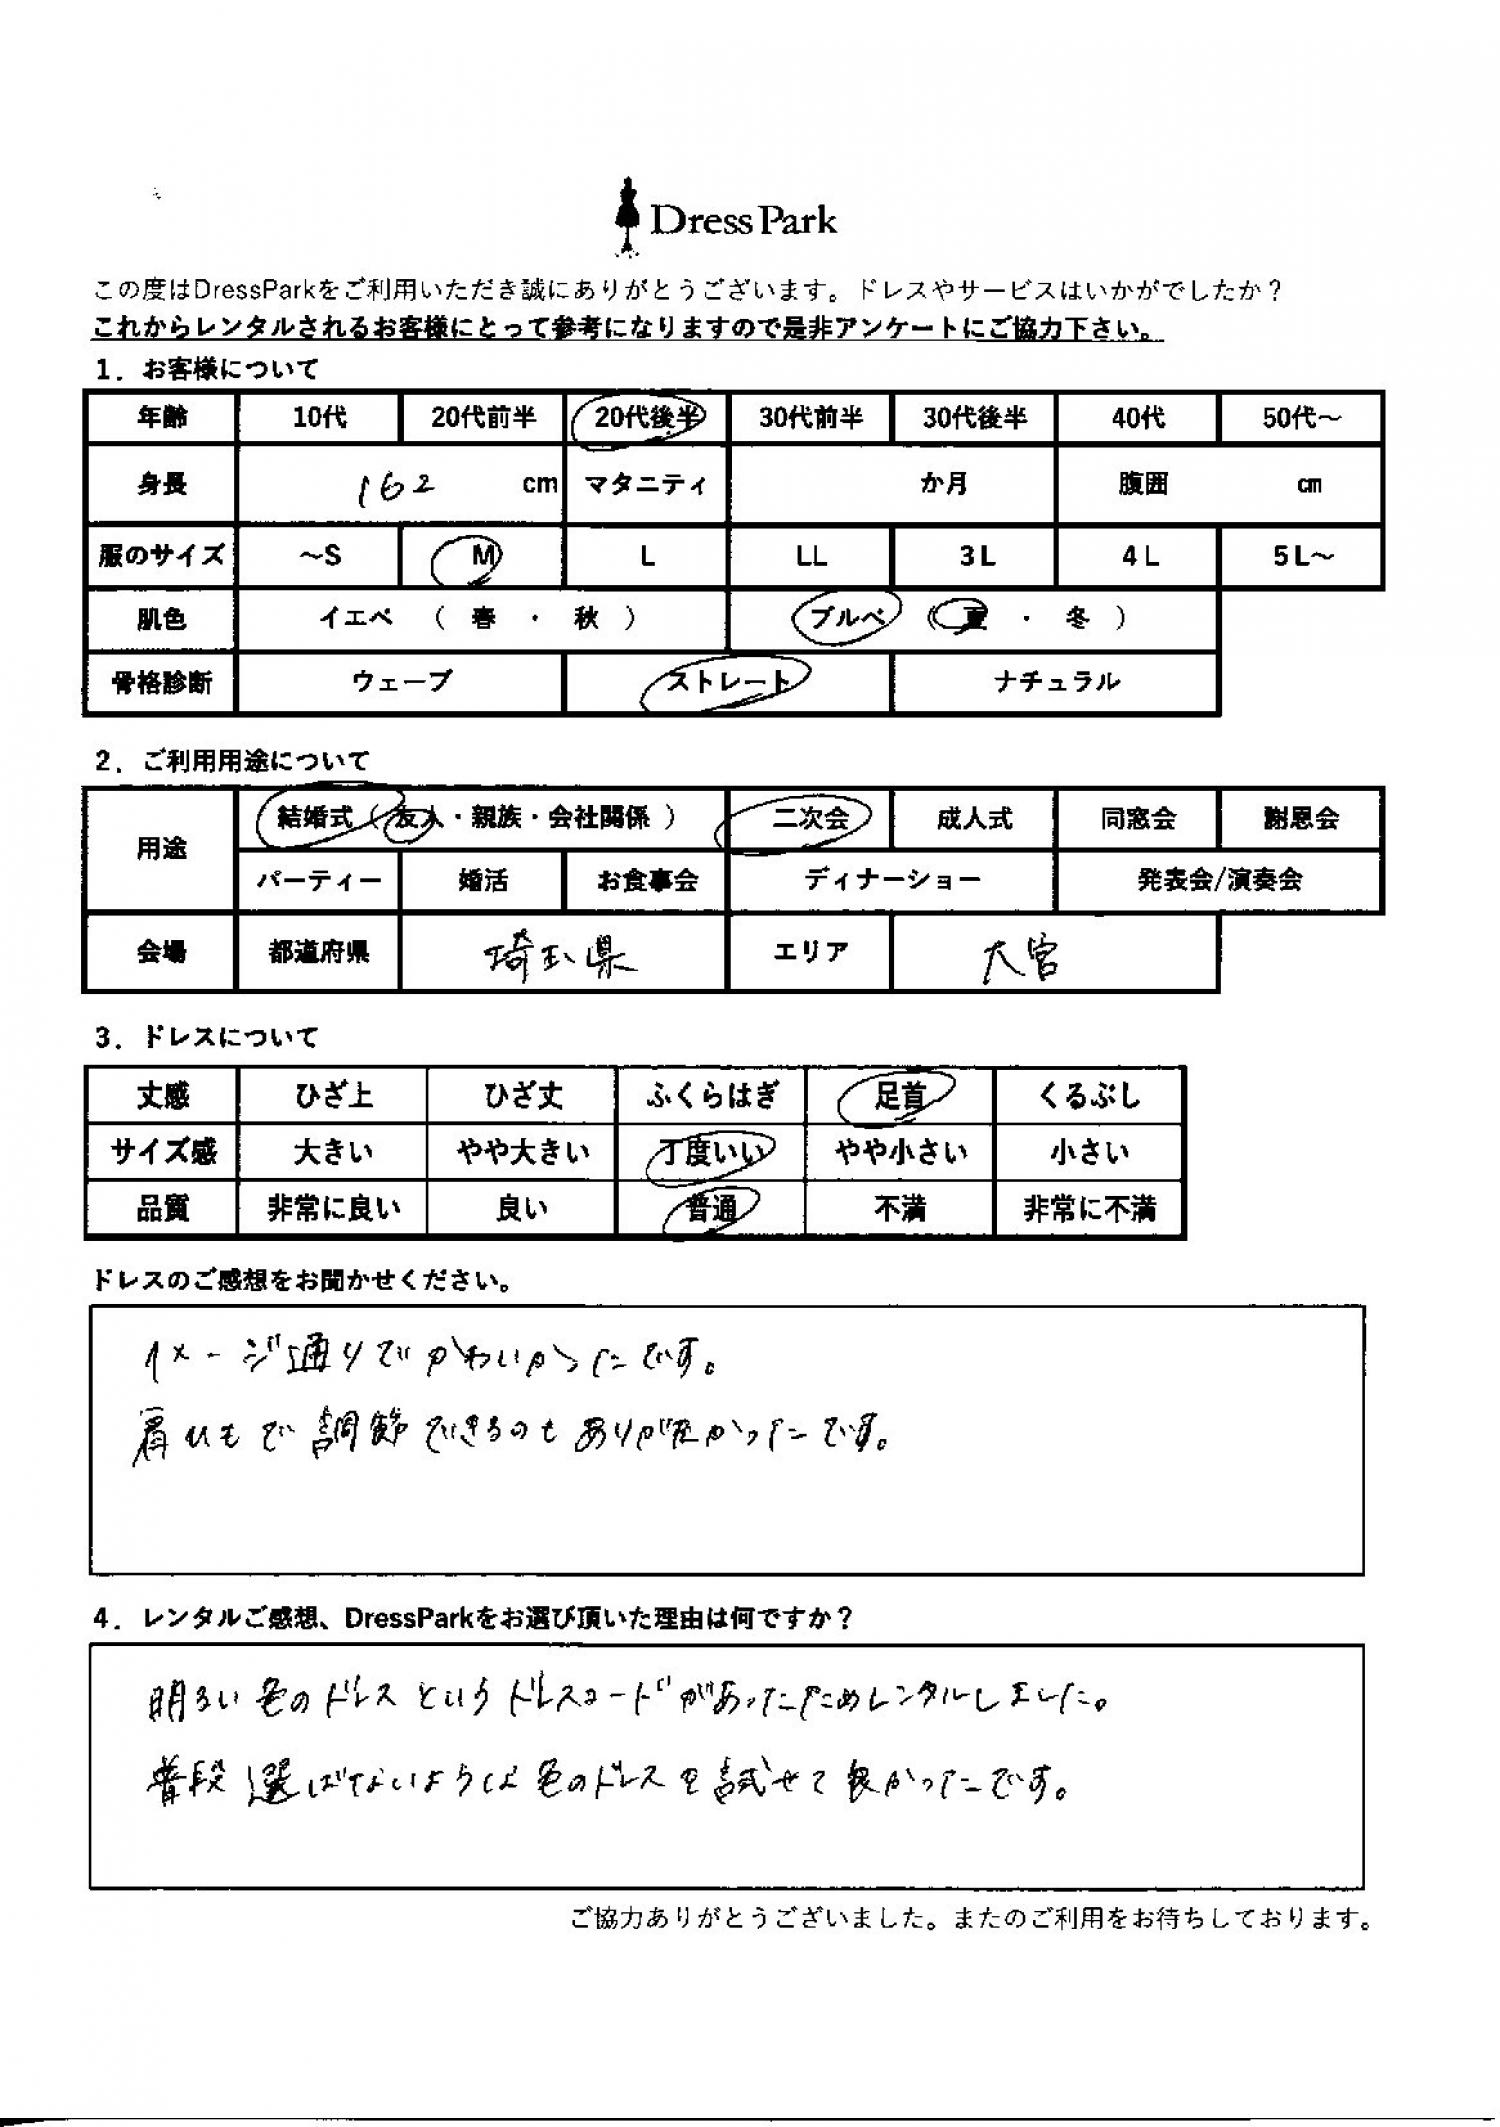 Dress Park
この度はDressParkをご利用いただき誠にありがとうございます。ドレスやサービスはいかがでしたか？
これからレンタルされるお客様にとって参考になりますので是非アンケートにご協力下さい。
1．お客様について
年齢 10代 20代前半 20代後半 30代前半 30代後半 40代 50代～
身長 162 cm マタニティ か月 腹囲 ㎝
服のサイズ ～S M L LL 3L 4L 5L～
肌色 イエベ （ 春 ・ 秋 ） ブルベ （ 夏 ・ 冬 ）
骨格診断 ウェーブ ストレート ナチュラル
2．ご利用用途について
用途 結婚式（友人・親族・会社関係） 二次会 成人式 同窓会 謝恩会
パーティー 婚活 お食事会 ディナーショー 発表会/演奏会
会場 都道府県 埼玉県 エリア 大宮
3．ドレスについて
丈感 ひざ上 ひざ丈 ふくらはぎ 足首 くるぶし
サイズ感 大きい やや大きい 丁度いい やや小さい 小さい
品質 非常に良い 良い 普通 不満 非常に不満
ドレスのご感想をお聞かせください。
イメージ通りでかわいかったです。
肩ひもで調節できるのもありがたかったです。
4．レンタルご感想、DressParkをお選び頂いた理由は何ですか？
明るい色のドレスというドレスコードがあったためレンタルしました。
普段選ばないような色のドレスを試せて良かったです。
ご協力ありがとうございました。またのご利用をお待ちしております。